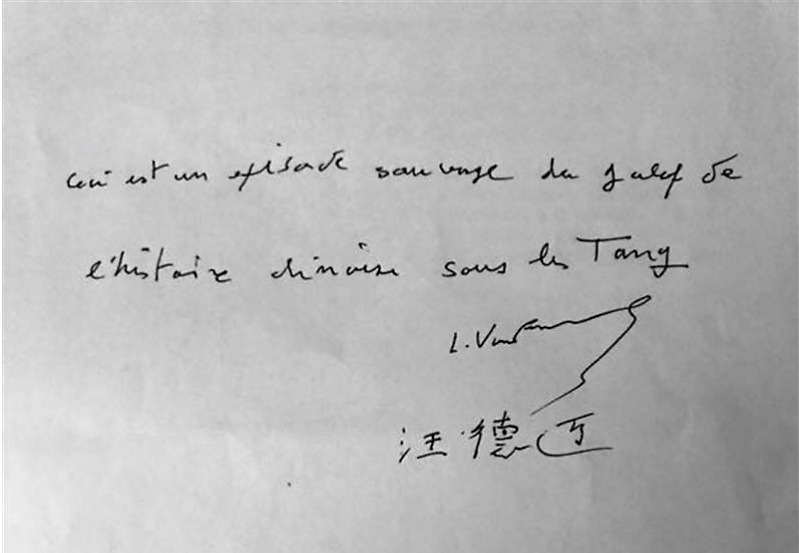 Ceci est un épisode sauvage du galop de
l'histoire chinoise sous les Tang
L. Vandermeersch
汪德迈